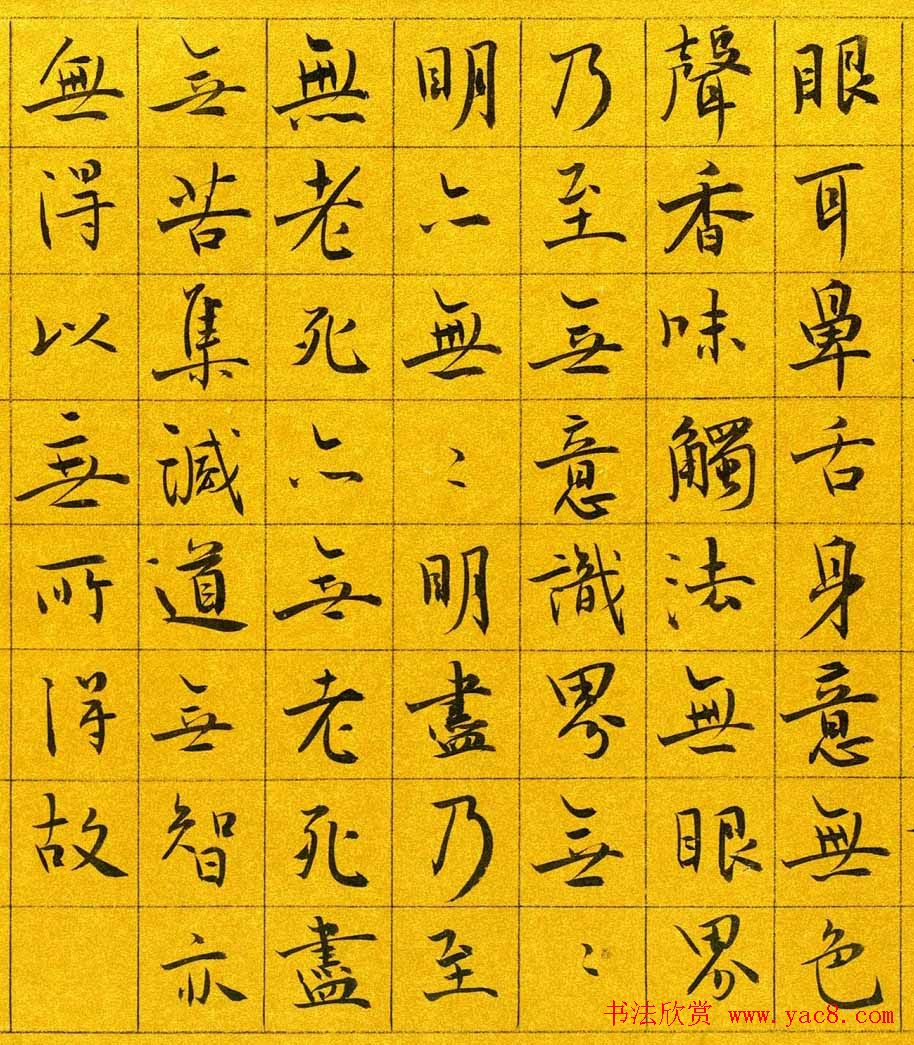 眼耳鼻舌身意無色
聲香味觸法無眼界
乃至無意識界無〻
明亦無〻明盡乃至
無老死亦無老死盡
無苦集滅道無智亦
無得以無所得故
书法欣赏 www.yac8.com